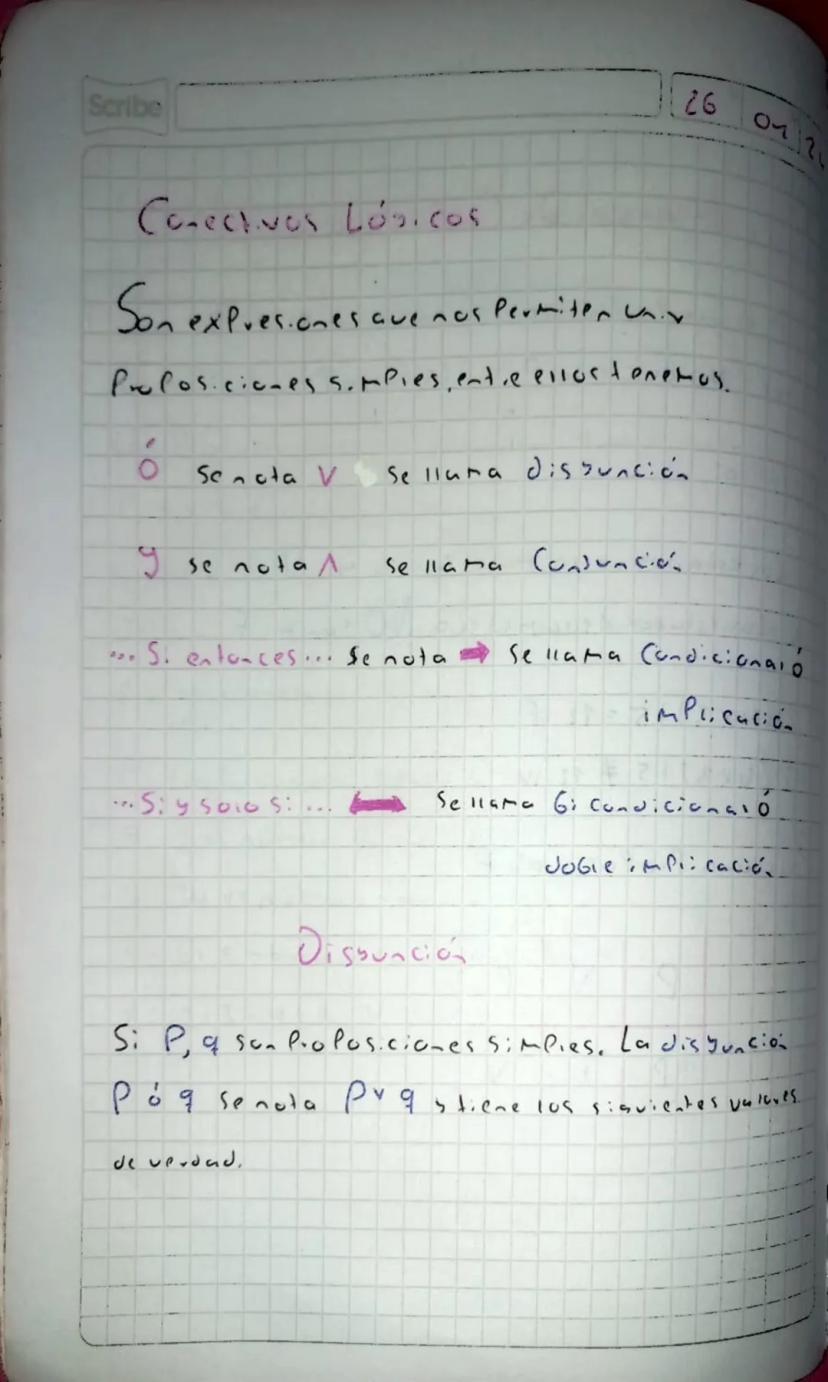 Scribe
26 01 2
Conectivos Lógicos
Son expresiones que nos permiten unir
proposiciones simples, entre ellos tenemos.
ó se nota ∨ se llama disyunción
y se nota ∧ se llama Conjunción
... Si entonces ... se nota ➡ se llama Condicional ó
implicación
... Si y solo si ... ⟷ se llama bicondicional ó
doble implicación
Disyunción
Si P, q son proposiciones simples. La disyunción
P ó q se nota P ∨ q y tiene los siguientes valores
de verdad.